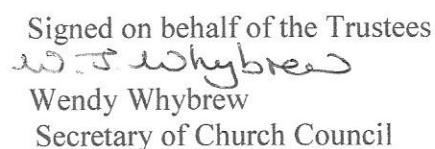 Signed on behalf of the Trustees
W. J. Whybrew
Wendy Whybrew
Secretary of Church Council